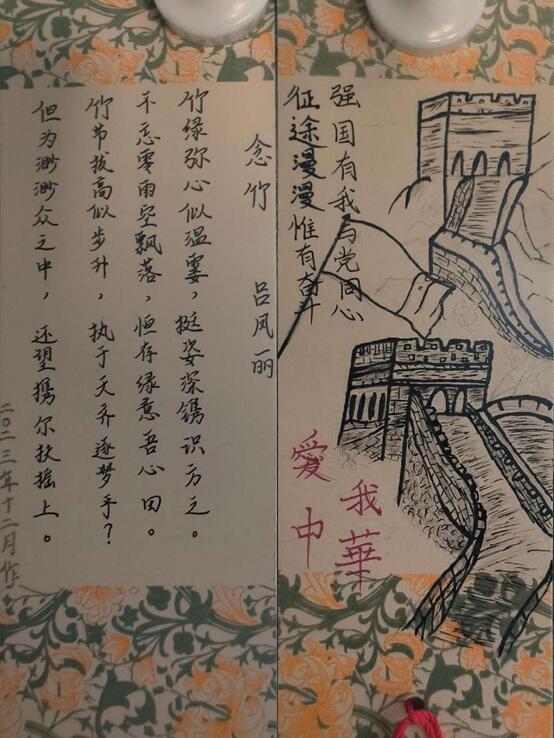 强国有我与党同心
征途漫漫惟有奋斗
愛我
中華
念竹 吕凤丽
竹绿弥心似温霎，挺姿深镌识方之。
不忘零雨空飘落，恒存绿意吾心田。
竹节拔高似步升，执于天齐逐梦乎？
但为渺渺众之中，还望携尔扶摇上。
二〇二三年十二月作